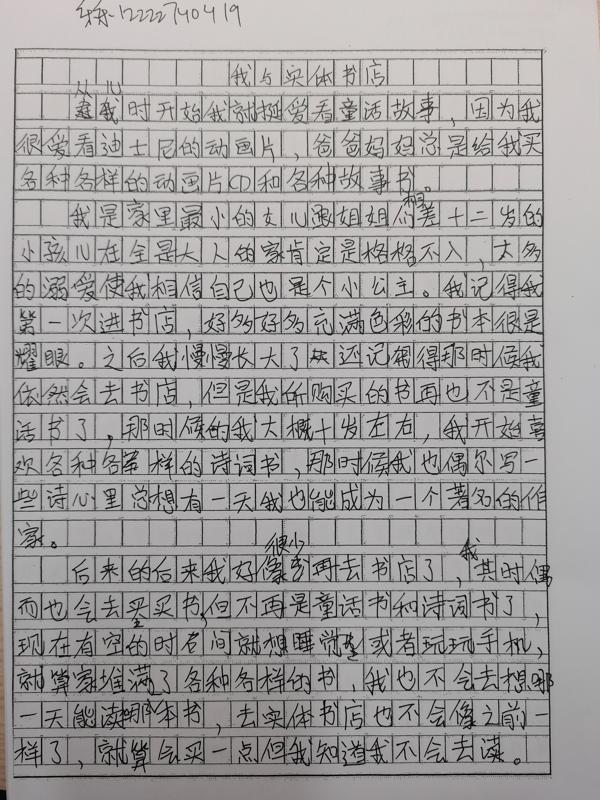 12222740419
我与实体书店
从儿时开始我就挺爱看童话故事，因为我
很爱看迪士尼的动画片，爸爸妈妈总是给我买
各种各样的动画片CD和各种故事书。
我是家里最小的女儿跟姐姐们相差十二岁的
小孩儿在全是大人的家肯定是格格不入，太多
的溺爱使我相信自己也是个小公主。我记得我
第一次进书店，好多好多充满色彩的书本很是
耀眼。之后我慢慢长大了还记得那时候我
依然会去书店，但是我所购买的书再也不是童
话书了，那时候的我大概十岁左右，我开始喜
欢各种各样的诗词书，那时候我也偶尔写一
些诗心里总想有一天我也能成为一个著名的作
家。
后来的后来我好像很少再去书店了，我其时偶
而也会去买书，但不再是童话书和诗词书了，
现在有空的时间就想睡觉或者玩玩手机，
就算家堆满了各种各样的书，我也不会去想哪
一天能读那本书，去实体书店也不会像之前一
样了，就算会买一点但我知道我不会去读。